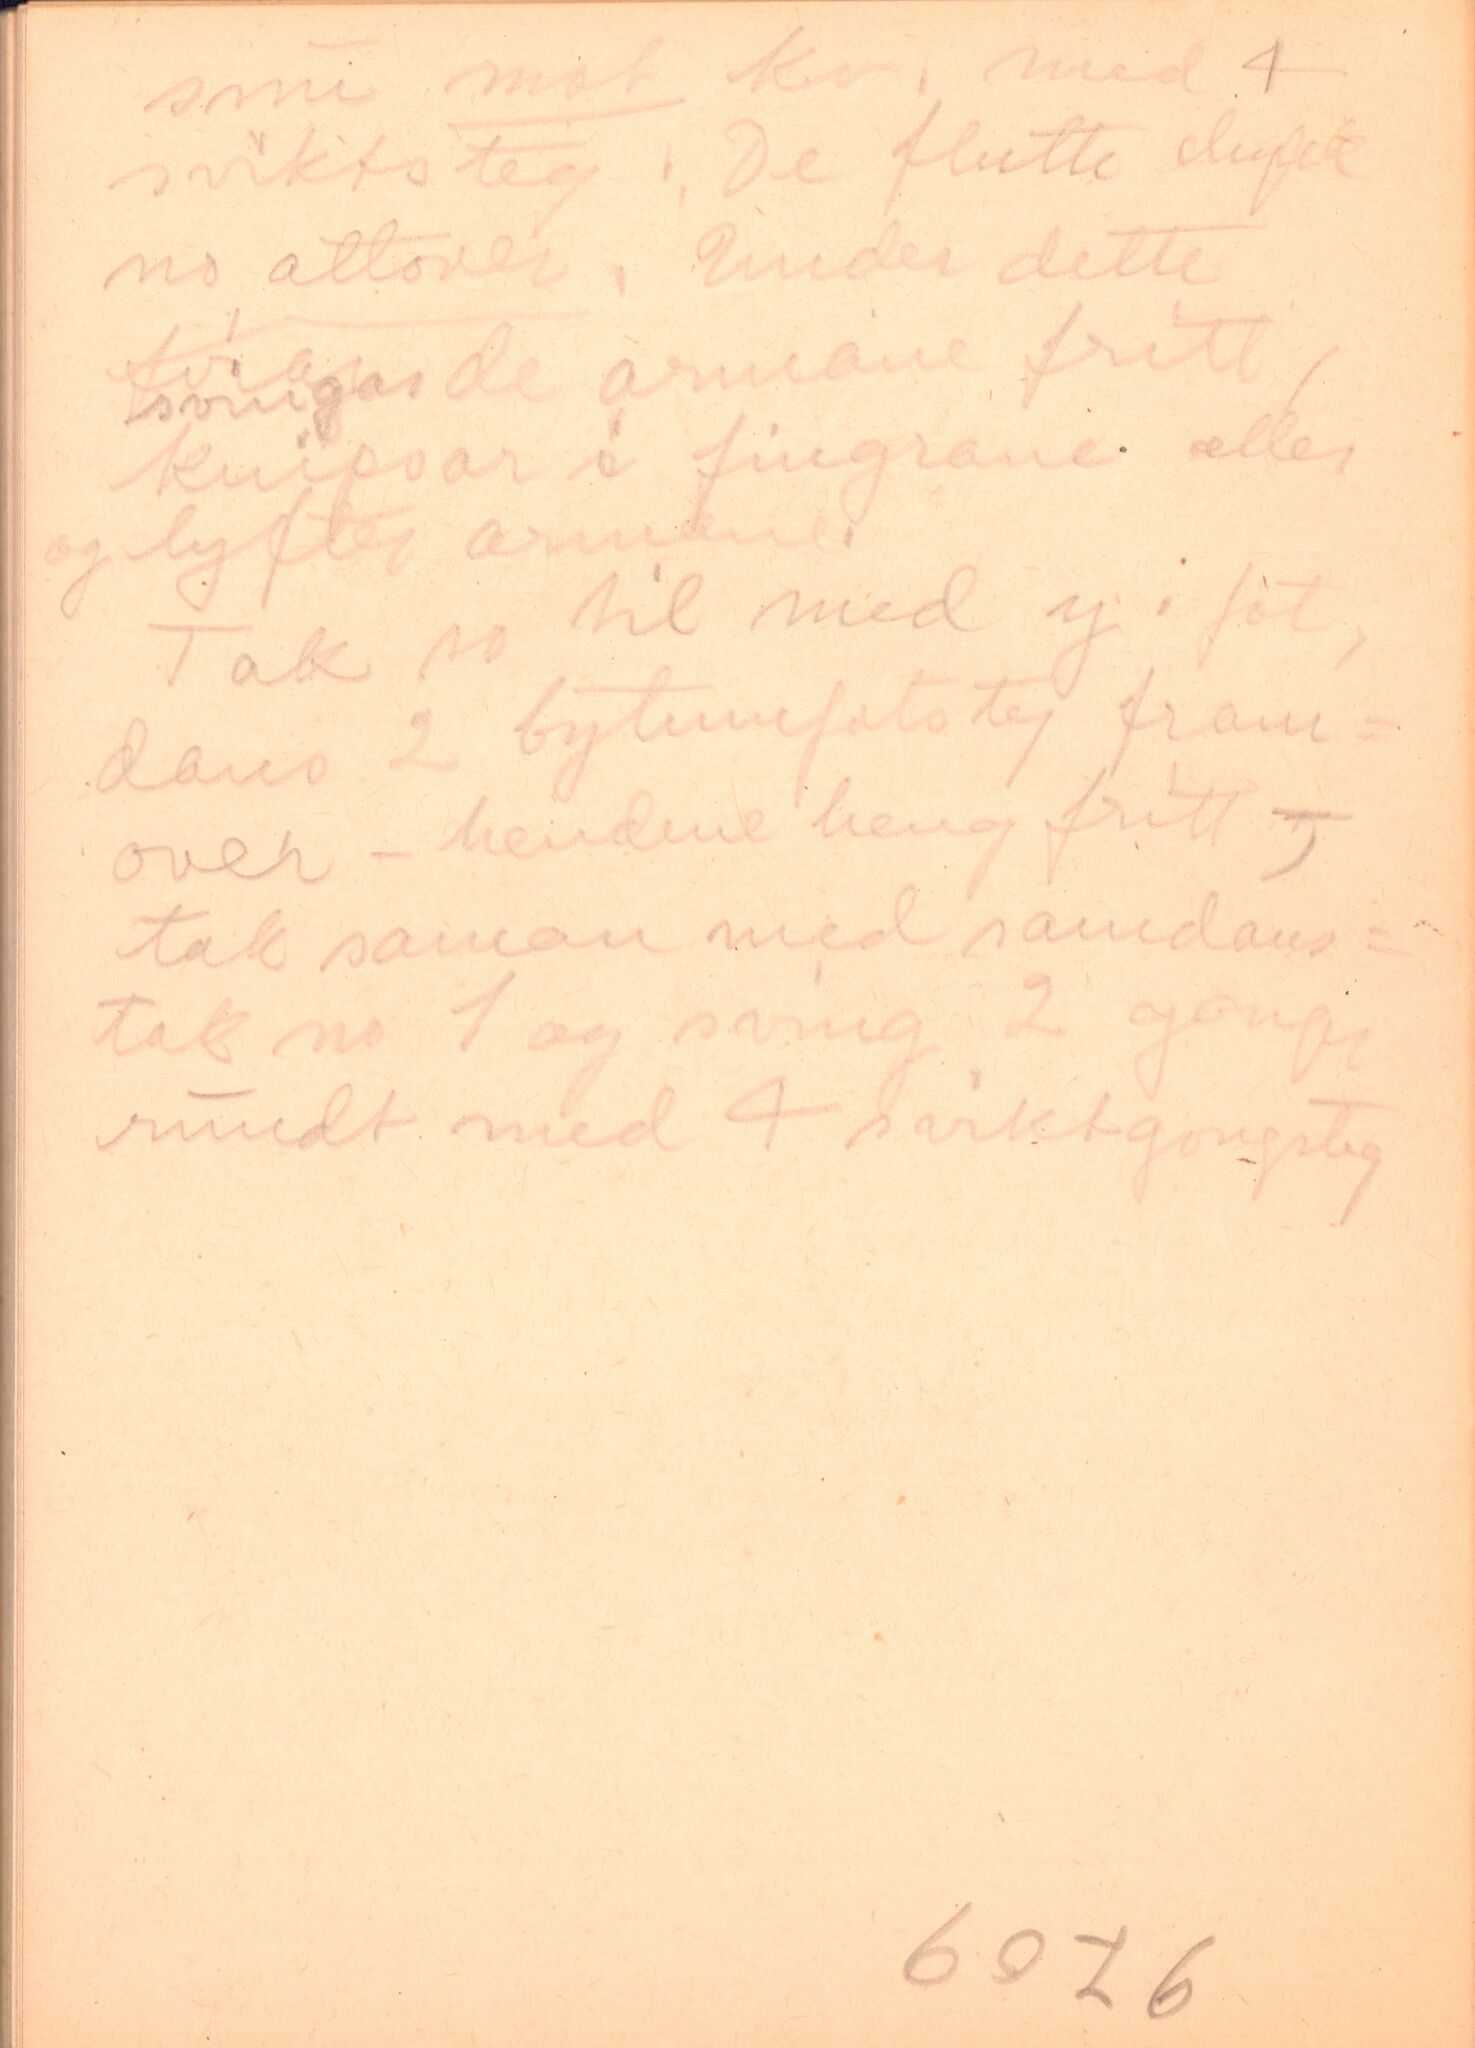 snu mot kv. med 4
sviktsteg. De flutte
no attover. Under dette
svingas de armane fritt,
knipsar i fingrane. eller
og lyfter armane.
Tak so til med y. fot,
dans 2 bytumfotsteg fram=
over - hendene heng fritt -,
tak saman med samdans=
tak no 1 og sving 2 gonger
rundt med 4 sviktgongsteg